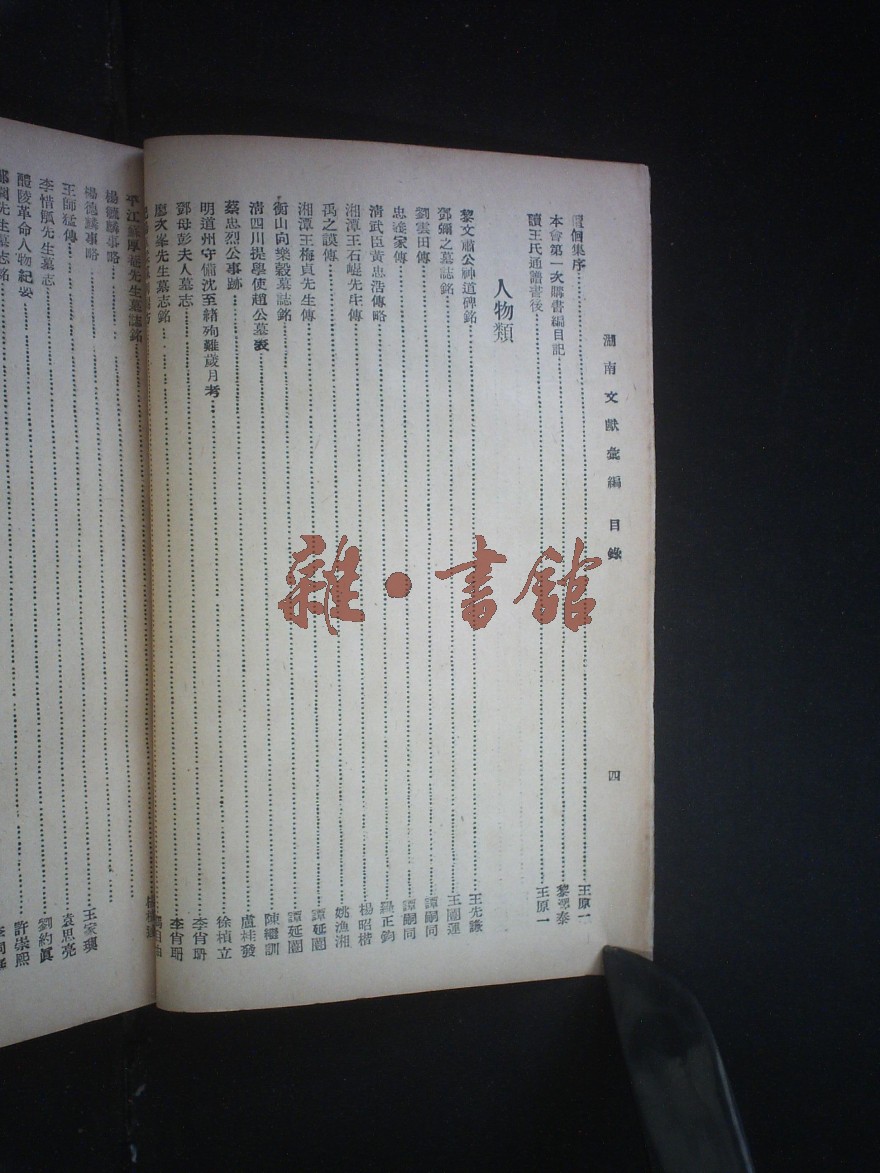 湖南文獻彙編 目錄
四
個集序 王原一
本會第一次購書編目記 黎澤泰
讀王氏通譜書後 王原一
人物類
黎文肅公神道碑銘 王先謙
鄧彌之墓誌銘 王闓運
劉雲田傳 譚嗣同
忠逵家傳 譚嗣同
清武臣黃忠浩傳略 羅正鈞
湘潭王石崐先生傳 楊昭楷
禹之謨傳 姚漁湘
湘潭王梅貞先生傳 譚延闓
衡山向樂穀墓誌銘 譚延闓
清四川提學使趙公墓表 陳繼訓
蔡忠烈公事跡 盧桂發
明道州守備沈至緒殉難歲月考 徐楨立
鄧母彭夫人墓志 李肖聃
廖次峯先生墓志銘 李肖聃
平江蘇厚菴先生墓誌銘
楊毓麟事略
楊德麟事略
王師猛傳 王家璵
李惜甎先生墓志 袁思亮
醴陵革命人物紀要 劉約眞
先生墓志銘 許崇熙
雜·書館